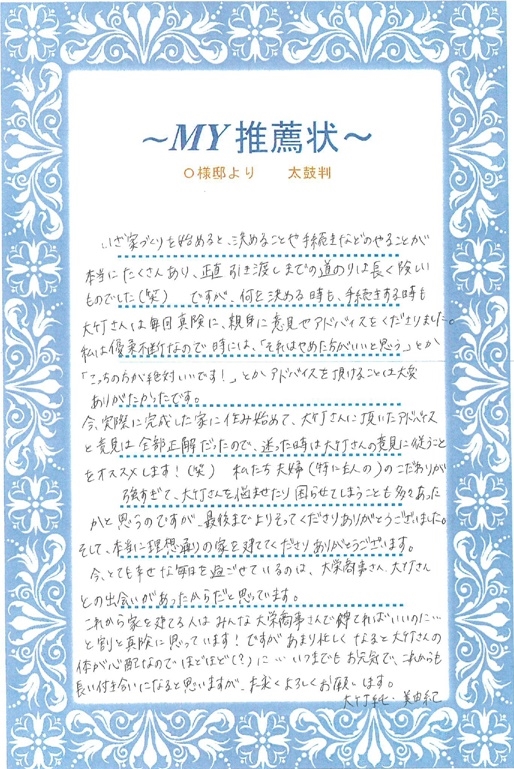 ～MY推薦状～
O様邸より　太鼓判
いざ家づくりを始めると、決めることや手続きなどのやることが
本当にたくさんあり、正直引き渡しまでの道のりは長く険しい
ものでした(笑)　ですが、何を決める時も、手続きする時も
大竹さんは毎回真険に、親身に意見やアドバイスをくださりました。
私は優柔不断なので時には、「それはやめた方がいいと思う」とか
「こっちの方が絶対いいです！」とかアドバイスを頂けることは大変
ありがたかったです。
今、実際に完成した家に住み始めて、大竹さんに頂いたアドバイス
と意見は全部正解だったので、迷った時は大竹さんの意見に従うこと
をオススメします！(笑)　私たち夫婦(特に主人の)のこだわりが
強すぎて、大竹さんを悩ませたり困らせてしまうことも多々あった
かと思うのですが、最後までよりそってくださりありがとうございました。
そして、本当に理想通りの家を建ててくださりありがとうございます。
今、とても幸せな毎日を過ごせているのは、大栄商事さん、大竹さん
との出会いがあったからだと思っています。
これから家を建てる人はみんな大栄商事さんで建てればいいのに…
と割と真険に思っています！ですがあまり忙しくなると大竹さんの
体が心配なのでほどほど(?)に…いつまでもお元気で、これからも
長い付き合いになると思いますが、末永くよろしくお願いします。